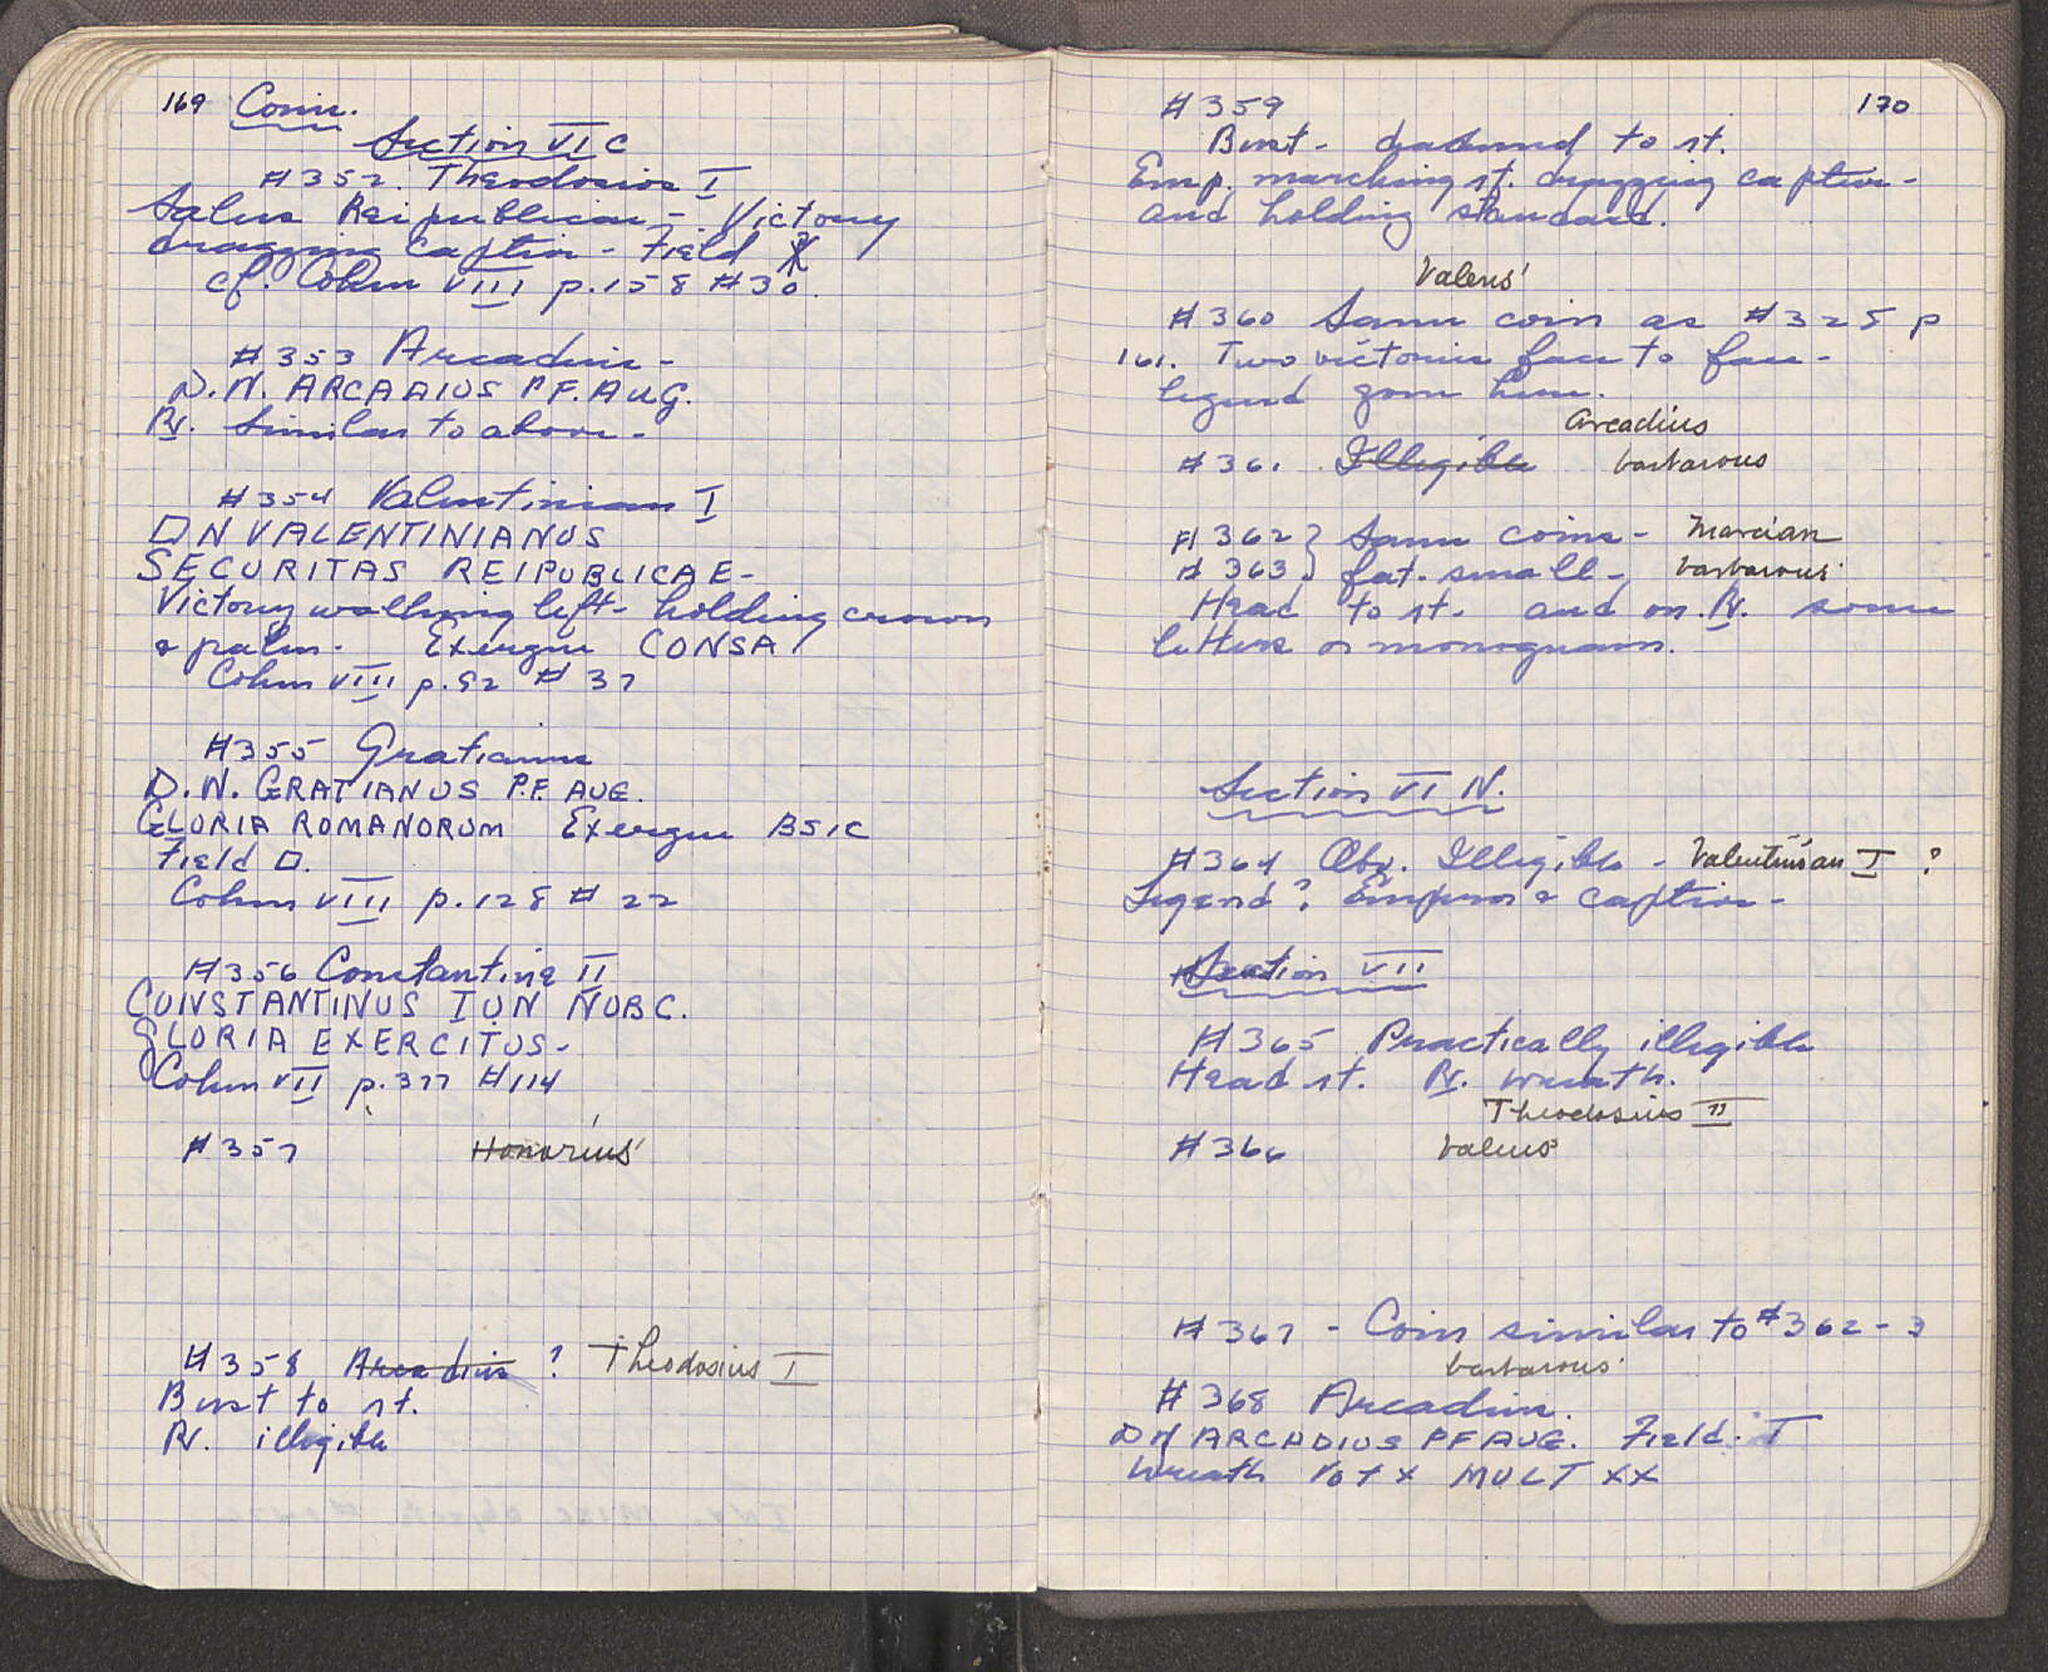 169 Coins.
Section VI C
#352. Theodosius I
Salus Reipublicae - Victory
dragging captive - Field
cf. Cohen VIII p.158 #30.
#353 Arcadius -
D.N. ARCADIUS P.F. AUG.
Rv. Similar to above -
#354 Valentinian I
DN VALENTINIANUS
SECURITAS REIPUBLICAE -
Victory walking left - holding crown
& palm - Exergue CONSA
Cohen VIII p.92 #37
#355 Gratianus
D.N. GRATIANUS P.F. AUG.
GLORIA ROMANORUM Exergue BSIC
Field D.
Cohen VIII p.128 #22
#356 Constantine II
CONSTANTINUS IUN NOBC.
GLORIA EXERCITUS -
Cohen VII p.377 #114
#357 Honorius
#358 Arcadius ? Theodosius I
Bust to rt.
Rv. illegible
#359 170
Bust - diademed to rt.
Emp. marching rt. dragging captive -
and holding standard.
Valens
#360 Same coin as #325 p
161. Two victories face to face -
legend gone here.
Arcadius
#361 Illegible barbarous
#362 } Same coins - Marcian
#363 } fat - small - barbarous
Head to rt. and on Rv. some
letters or monogram.
Section VI N.
#364 Obv. Illegible - Valentinian I ?
Legend? Emperor & captive -
Section VII
#365 Practically illegible
Head rt. Rv. wreath.
Theodosius II
#366 Valens
#367 - Coin similar to #362-3
barbarous
#368 Arcadius.
DN ARCADIUS PF AUG. Field. T
Wreath Vot X MULT XX